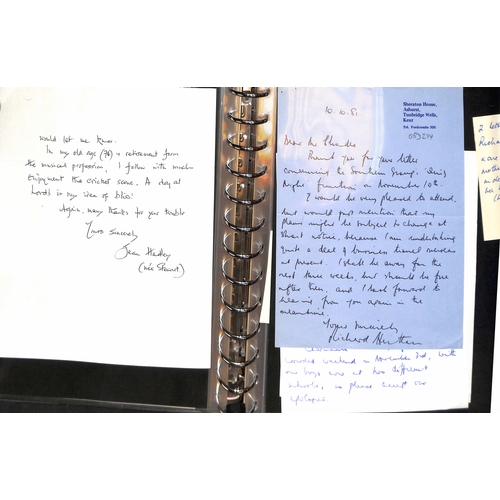 would let me know.
In my old age (76) & retirement form
the musical profession, I follow with much
enjoyment the cricket scene. A day at
Lord's is my idea of bliss!
Again, many thanks for your trouble
Yours sincerely
Jean Hadley
(née Stewart)
Sheraton House,
Ashurst,
Tunbridge Wells,
Kent
Tel. Fordcombe
10.10.81
Dear Mr
Thank you for your letter
concerning the
function on November 10th.
I would be very pleased to attend,
but would just mention that my
plans might be subject to change at
short notice, because I am undertaking
quite a deal of business travel overseas
at present. I shall be away for the
next three weeks, but should be free
after then, and I look forward to
hearing from you again in the
meantime.
Yours sincerely
Richard
crowded weekend in November 2nd, with
our boys now at two different
schools, so please accept our
apologies.